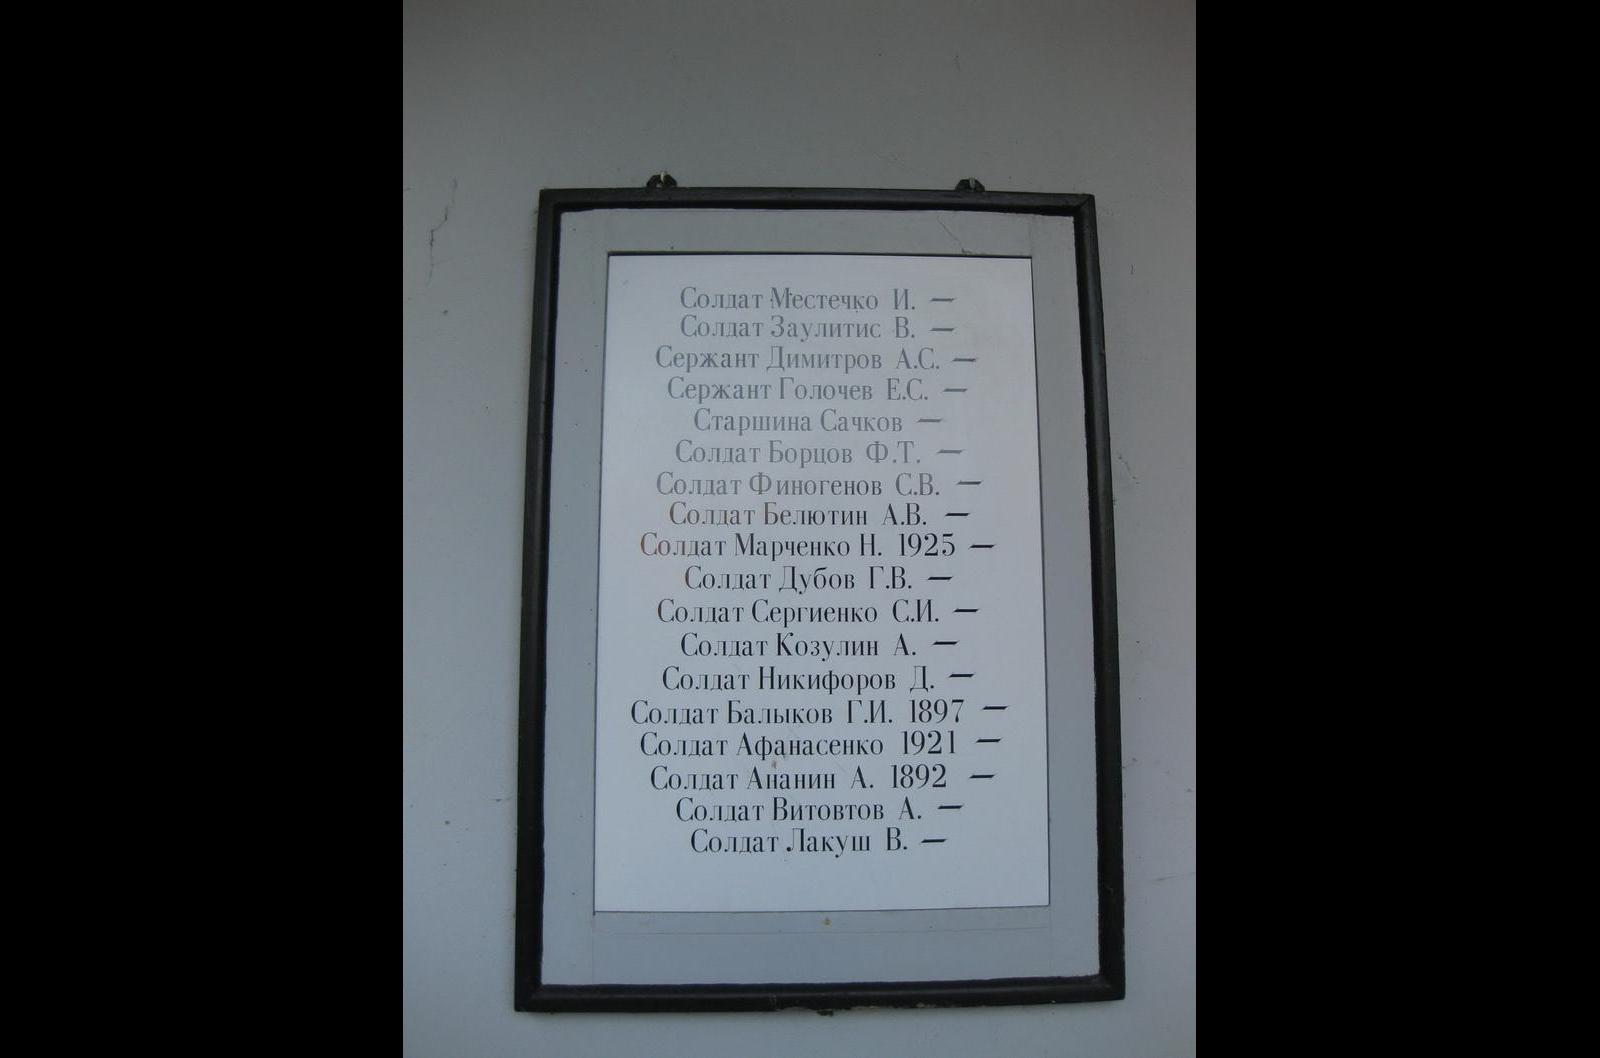 Солдат Местечко И. —
Солдат Заулитис В. —
Сержант Димитров А.С. —
Сержант Голочев Е.С. —
Старшина Сачков —
Солдат Борцов Ф.Т. —
Солдат Финогенов С.В. —
Солдат Белютин А.В. —
Солдат Марченко Н. 1925 —
Солдат Дубов Г.В. —
Солдат Сергиенко С.И. —
Солдат Козулин А. —
Солдат Никифоров Д. —
Солдат Балыков Г.И. 1897 —
Солдат Афанасенко 1921 —
Солдат Ананин А. 1892 —
Солдат Витовтов А. —
Солдат Лакуш В. —